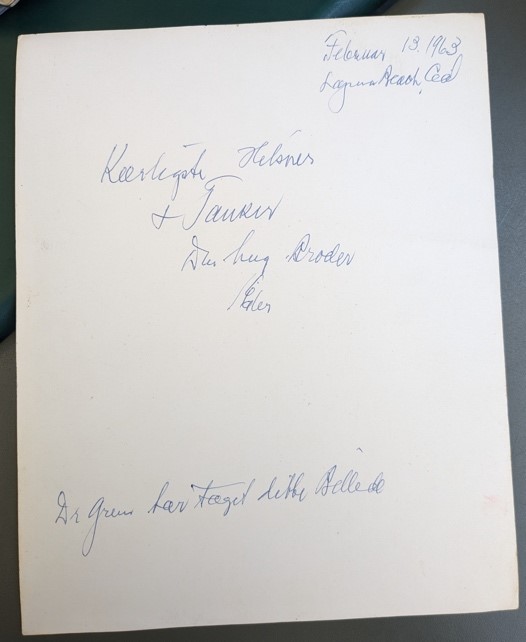 Februar 13. 1963
Laguna Beach, Cal
Kærligste Hilsner
& Tanker
Din Broder
Dr Green har taget dette Billede